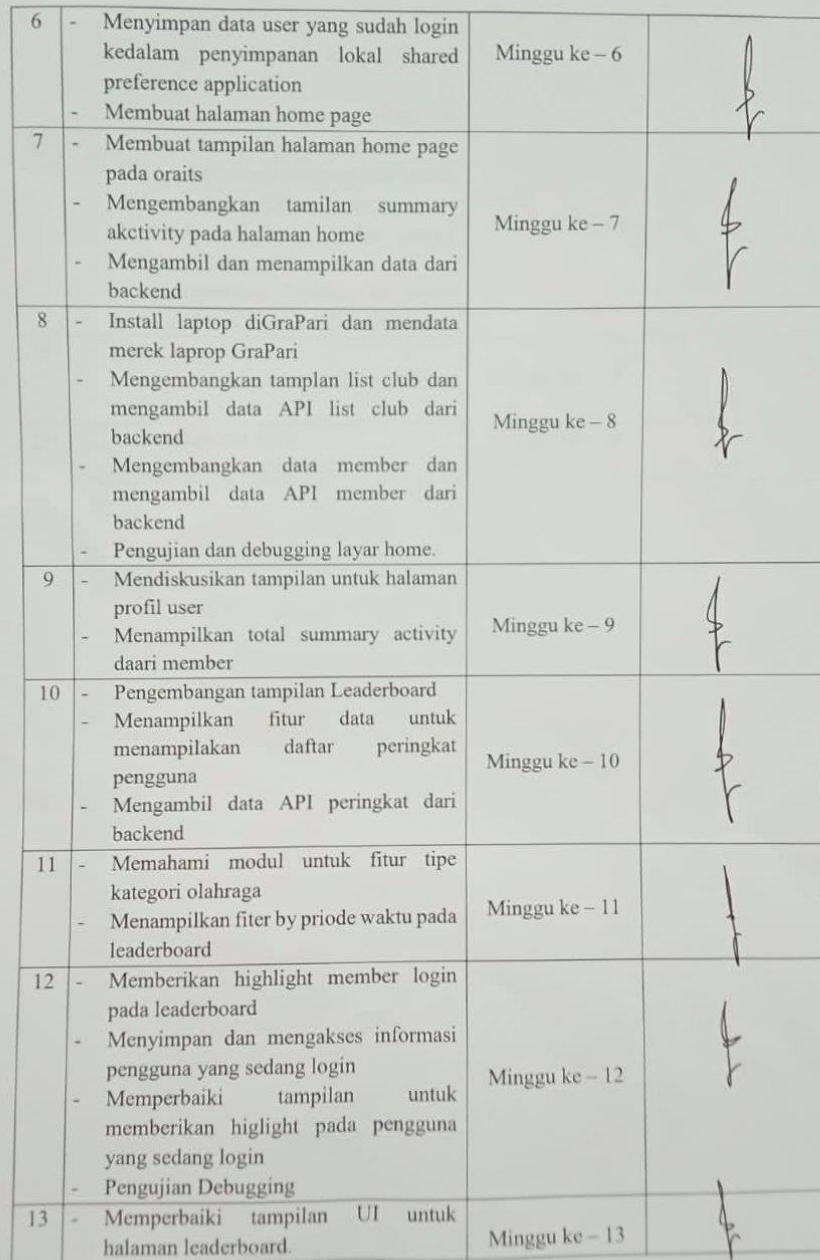 6 - Menyimpan data user yang sudah login
kedalam penyimpanan lokal shared
preference application
- Membuat halaman home page
Minggu ke – 6
7 - Membuat tampilan halaman home page
pada oraits
- Mengembangkan tamilan summary
akctivity pada halaman home
- Mengambil dan menampilkan data dari
backend
Minggu ke – 7
8 - Install laptop diGraPari dan mendata
merek laprop GraPari
- Mengembangkan tamplan list club dan
mengambil data API list club dari
backend
- Mengembangkan data member dan
mengambil data API member dari
backend
- Pengujian dan debugging layar home.
Minggu ke – 8
9 - Mendiskusikan tampilan untuk halaman
profil user
- Menampilkan total summary activity
daari member
Minggu ke – 9
10 - Pengembangan tampilan Leaderboard
- Menampilkan fitur data untuk
menampilakan daftar peringkat
pengguna
- Mengambil data API peringkat dari
backend
Minggu ke – 10
11 - Memahami modul untuk fitur tipe
kategori olahraga
- Menampilkan fiter by priode waktu pada
leaderboard
Minggu ke – 11
12 - Memberikan highlight member login
pada leaderboard
- Menyimpan dan mengakses informasi
pengguna yang sedang login
- Memperbaiki tampilan untuk
memberikan higlight pada pengguna
yang sedang login
- Pengujian Debugging
Minggu ke – 12
13 - Memperbaiki tampilan UI untuk
halaman leaderboard.
Minggu ke – 13